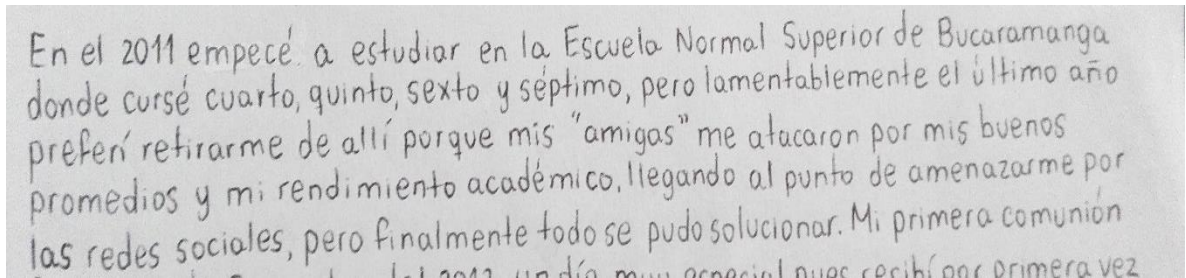 En el 2011 empecé a estudiar en la Escuela Normal Superior de Bucaramanga
donde cursé cuarto, quinto, sexto y séptimo, pero lamentablemente el último año
preferí retirarme de allí porque mis "amigas" me atacaron por mis buenos
promedios y mi rendimiento académico, llegando al punto de amenazarme por
las redes sociales, pero finalmente todo se pudo solucionar. Mi primera comunión
un día muy especial pues recibí por primera vez